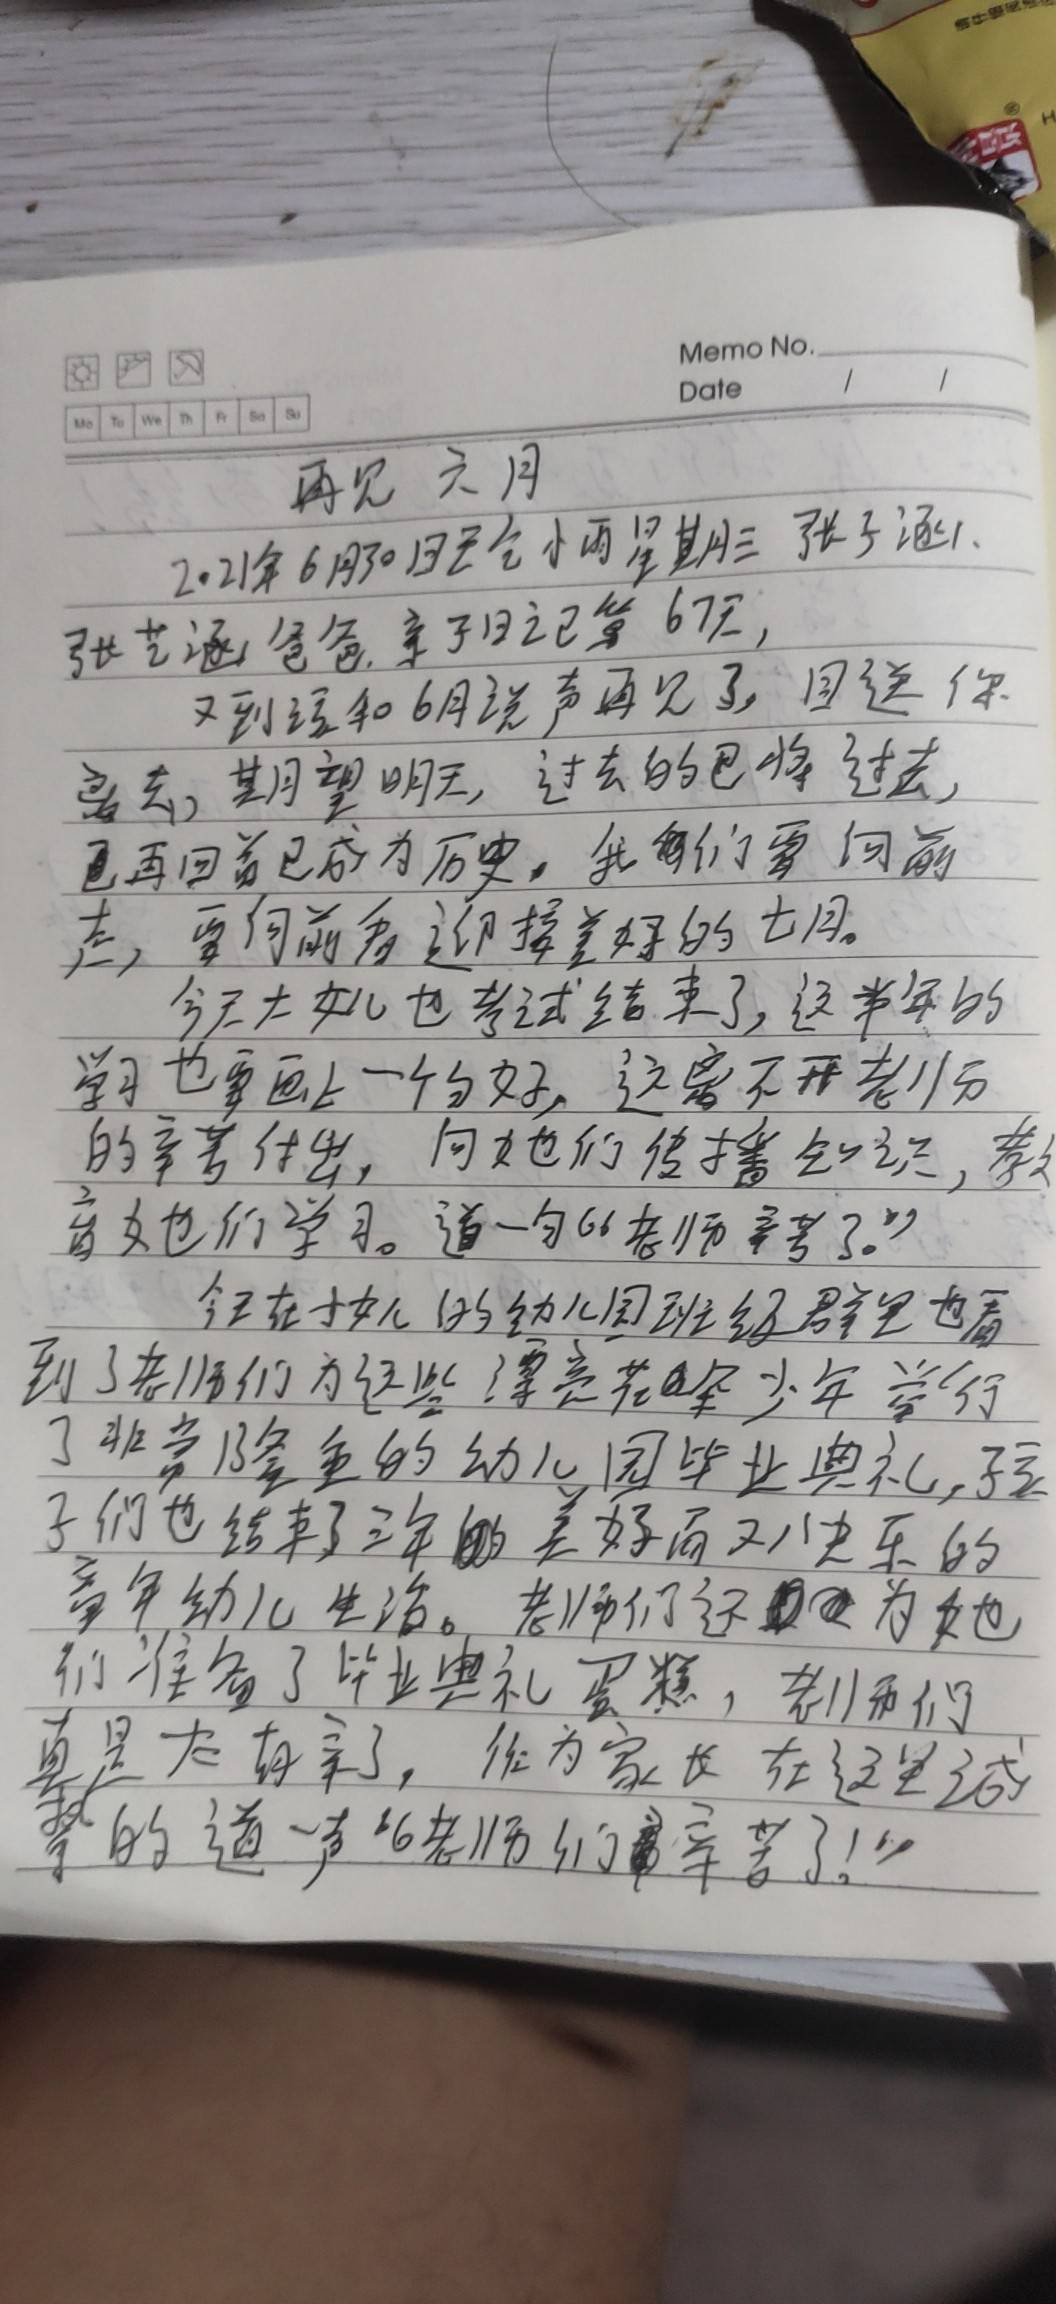 Memo No.
Date / /
Mo Tu We Th Fr Sa Su
再见 六月
2021年6月30日天气小雨星期三 张子涵、
张艺涵爸爸.亲子日记第67天,
又到该和6月说声再见了,目送你
离去,期望明天,过去的已将过去,
再回首已成为历史。我们要向前
走,要向前看迎接美好的七月。
今天大女儿也考试结束了,这半年的
学习也要画上一个句好,这离不开老师
的辛苦付出,向她们传播知识,教
育她们学习。道一句“老师辛苦了。”
今天在小女儿的幼儿园班级群里也看
到了老师们为这些漂亮花朵少年举行
了非常隆重的幼儿园毕业典礼,孩
子们也结束了三年的美好而又快乐的
童年幼儿生活。老师们还为她
们准备了毕业典礼蛋糕,老师们
真是太好亲了,作为家长在这里诚
挚的道一声“老师们辛苦了!”